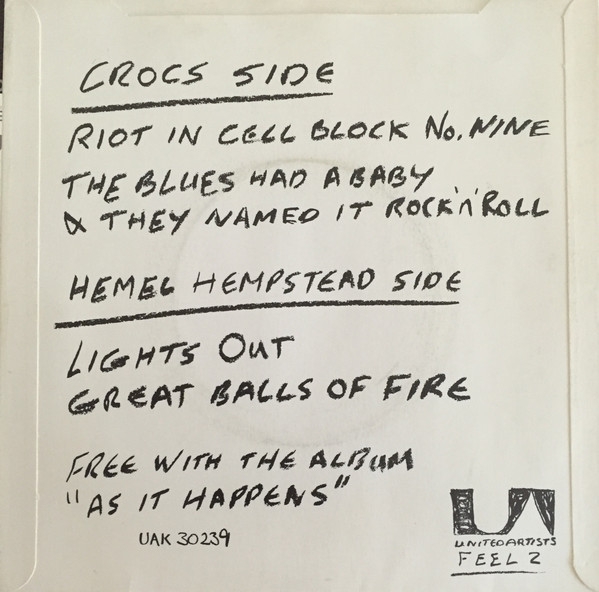 CROCS SIDE
RIOT IN CELL BLOCK No. NINE
THE BLUES HAD A BABY
& THEY NAMED IT ROCK'N'ROLL
HEMEL HEMPSTEAD SIDE
LIGHTS OUT
GREAT BALLS OF FIRE
FREE WITH THE ALBUM
"AS IT HAPPENS"
UAK 30239
UA
UNITED ARTISTS
FEEL 2